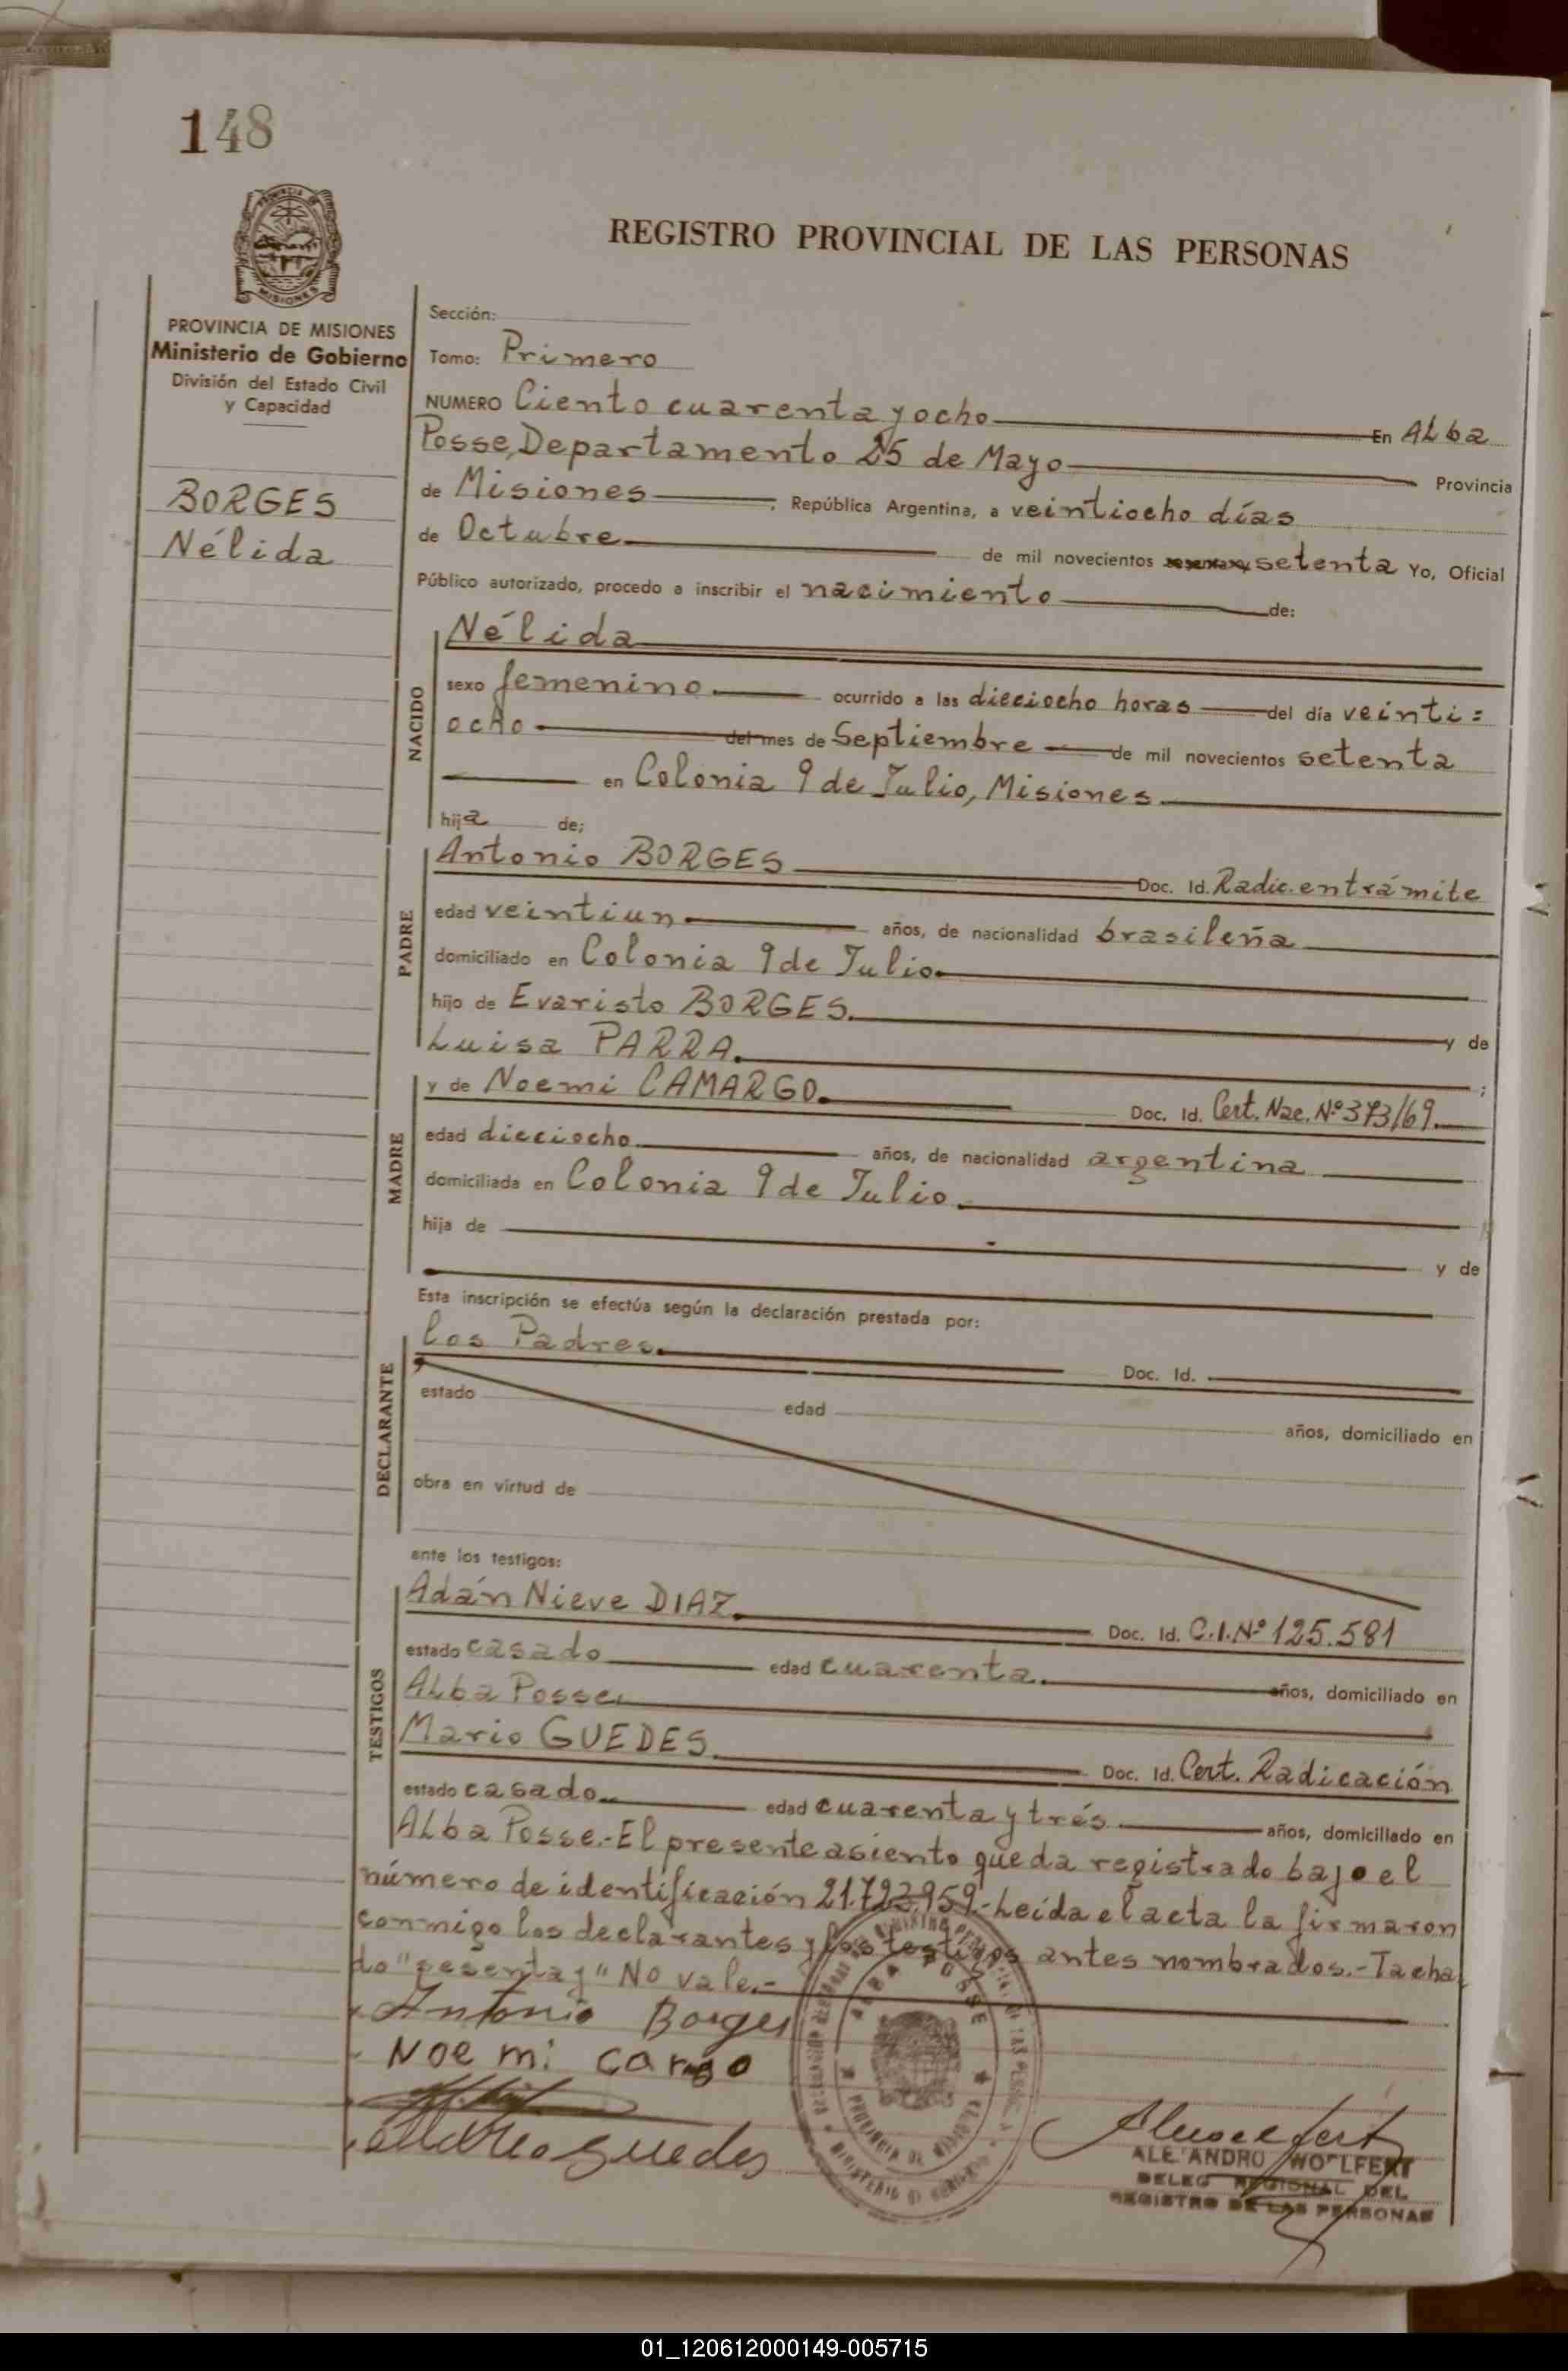 148
REGISTRO PROVINCIAL DE LAS PERSONAS
PROVINCIA DE MISIONES
Ministerio de Gobierno
División del Estado Civil
y Capacidad
BORGES
Nélida
Sección:
Tomo: Primero
NUMERO Ciento cuarenta y ocho En ALba
Posse, Departamento 25 de Mayo Provincia
de Misiones, República Argentina, a veintiocho días
de Octubre de mil novecientos setenta Yo, Oficial
Público autorizado, procedo a inscribir el nacimiento de:
NACIDO
Nélida
sexo femenino. ocurrido a las dieciocho horas del día veinti=
ocho del mes de Septiembre de mil novecientos setenta
en Colonia 9 de Julio, Misiones.
hija de;
PADRE
Antonio BORGES Doc. Id. Radic. en trámite
edad veintiun años, de nacionalidad brasileña
domiciliado en Colonia 9 de Julio.
hijo de Evaristo BORGES. y de
Luisa PARRA. ;
MADRE
y de Noemi CAMARGO. Doc. Id. Cert. Nac. Nº 373/69.
edad dieciocho. años, de nacionalidad argentina
domiciliada en Colonia 9 de Julio.
hija de y de
Esta inscripción se efectúa según la declaración prestada por:
DECLARANTE
los Padres. Doc. Id.
estado edad años, domiciliado en
obra en virtud de
ante los testigos:
TESTIGOS
Adán Nieve DIAZ. Doc. Id. C.I. Nº 125.581
estado casado edad cuarenta. años, domiciliado en
ALba Posse.
Mario GUEDES. Doc. Id. Cert. Radicación
estado casado. edad cuarenta y trés años, domiciliado en
ALba Posse.- El presente asiento queda registrado bajo el
número de identificación 21.723.959.- Leída el acta la firmaron
conmigo los declarantes y los testigos antes nombrados.- Tacha
do "sesenta y" No vale.-
Antonio Borges
Noe mi cargo
Mario Guedes
ALEJANDRO WOLFERT
DELEG REGIONAL DEL
REGISTRO DE LAS PERSONAS
01_120612000149-005715